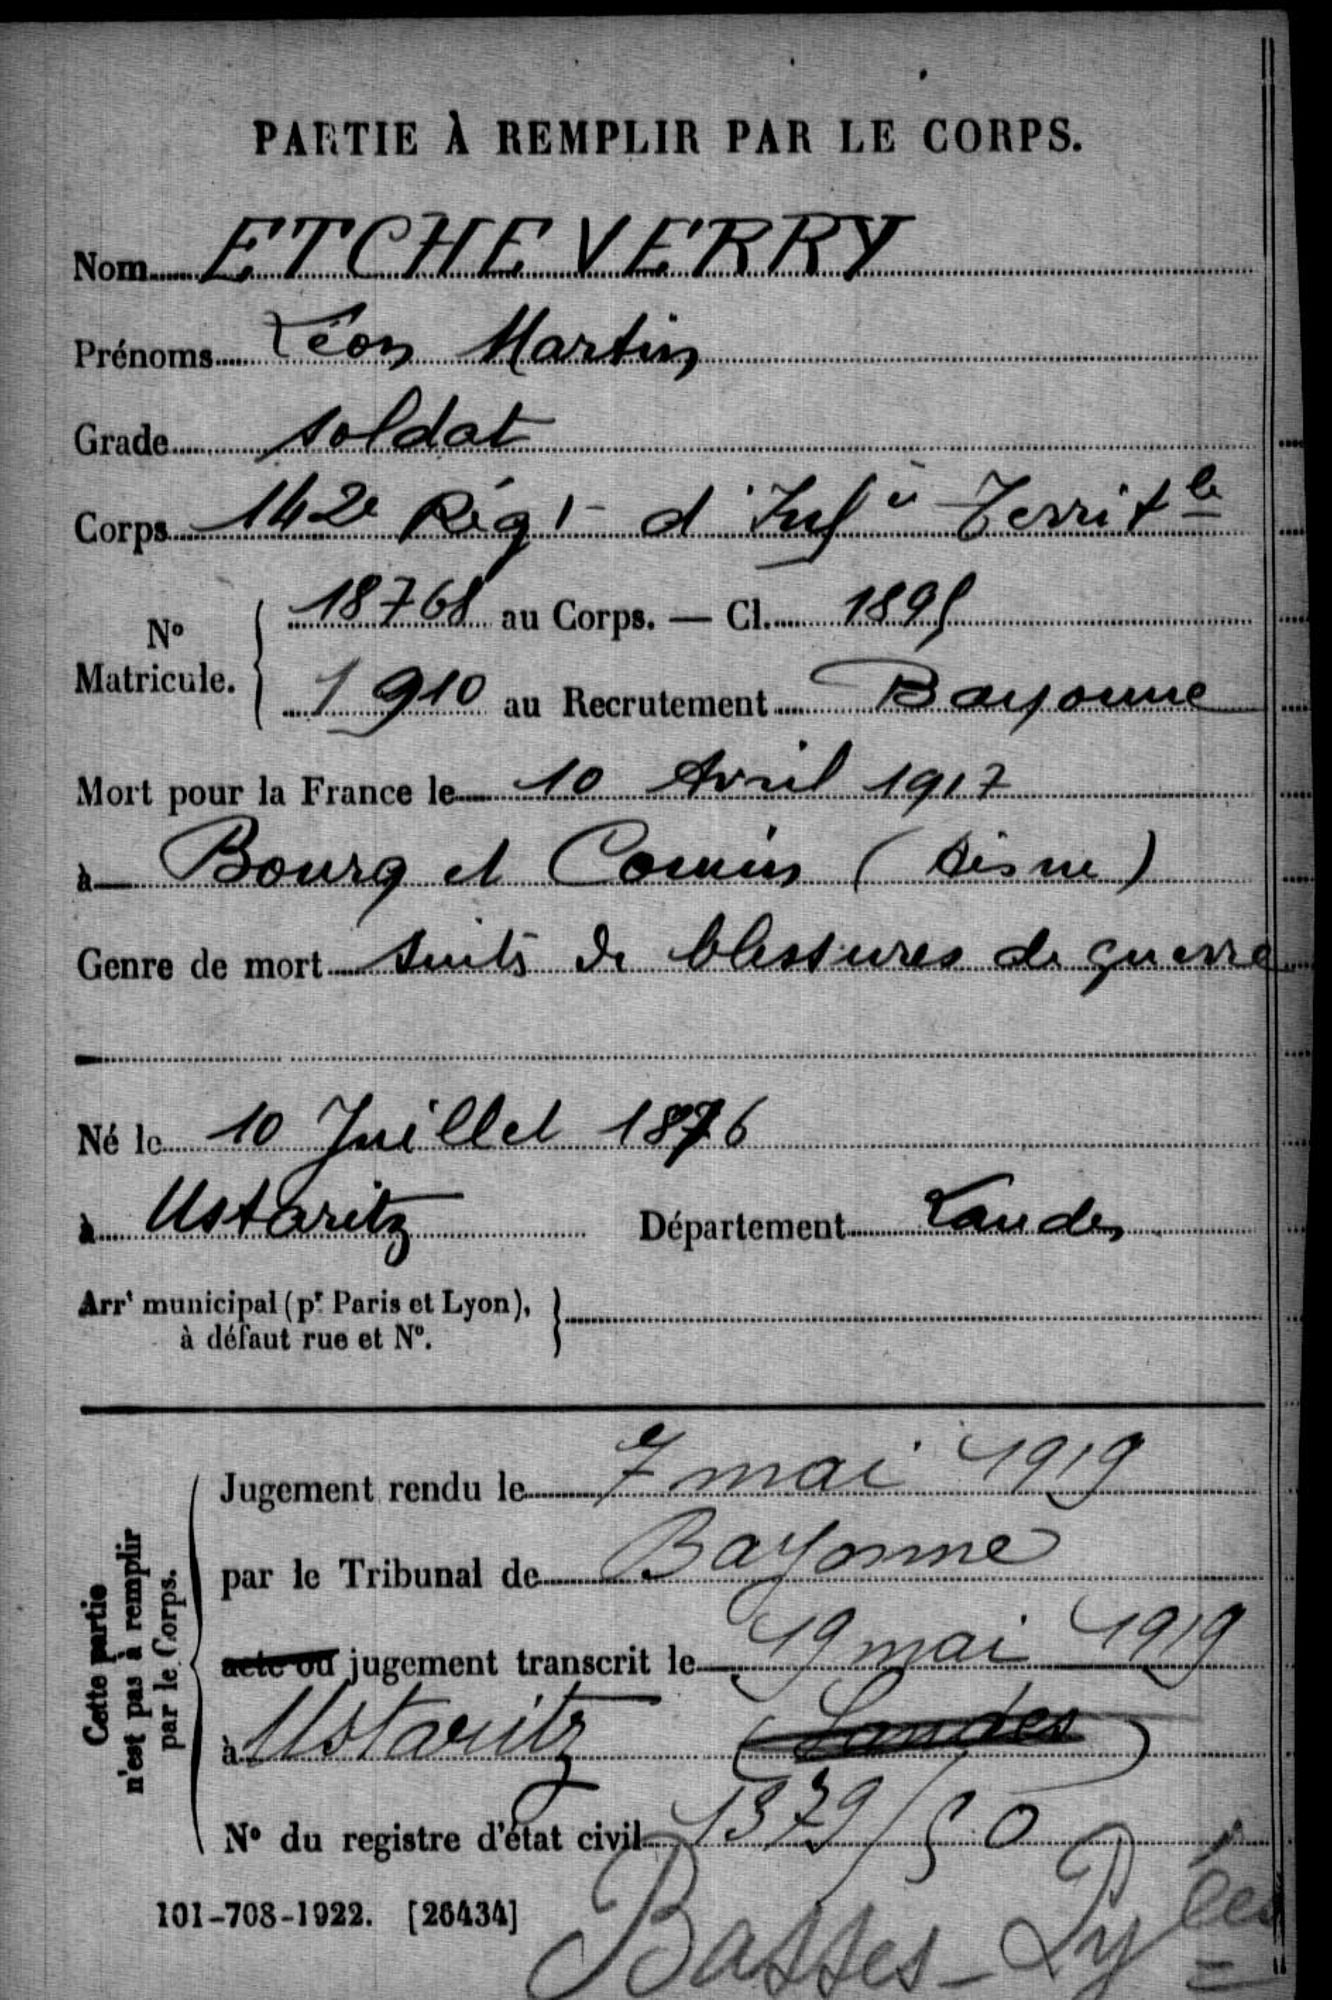 PARTIE À REMPLIR PAR LE CORPS.
Nom ETCHEVERRY
Prénoms Léon Martin
Grade soldat
Corps 142e Régt d'Infie Territle
No Matricule. 18768 au Corps. — Cl. 1895
1910 au Recrutement Bayonne
Mort pour la France le 10 Avril 1917
à Bourg et Comin (Aisne)
Genre de mort suites de blessures de guerre
Né le 10 Juillet 1876
à Ustaritz Département Landes
Arrt municipal (pr Paris et Lyon), à défaut rue et No.
Cette partie n'est pas à remplir par le Corps.
Jugement rendu le 7 mai 1919
par le Tribunal de Bayonne
acte ou jugement transcrit le 19 mai 1919
à Ustaritz (Landes)
No du registre d'état civil 1379/50
101-708-1922. [26434]
Basses-Pyées